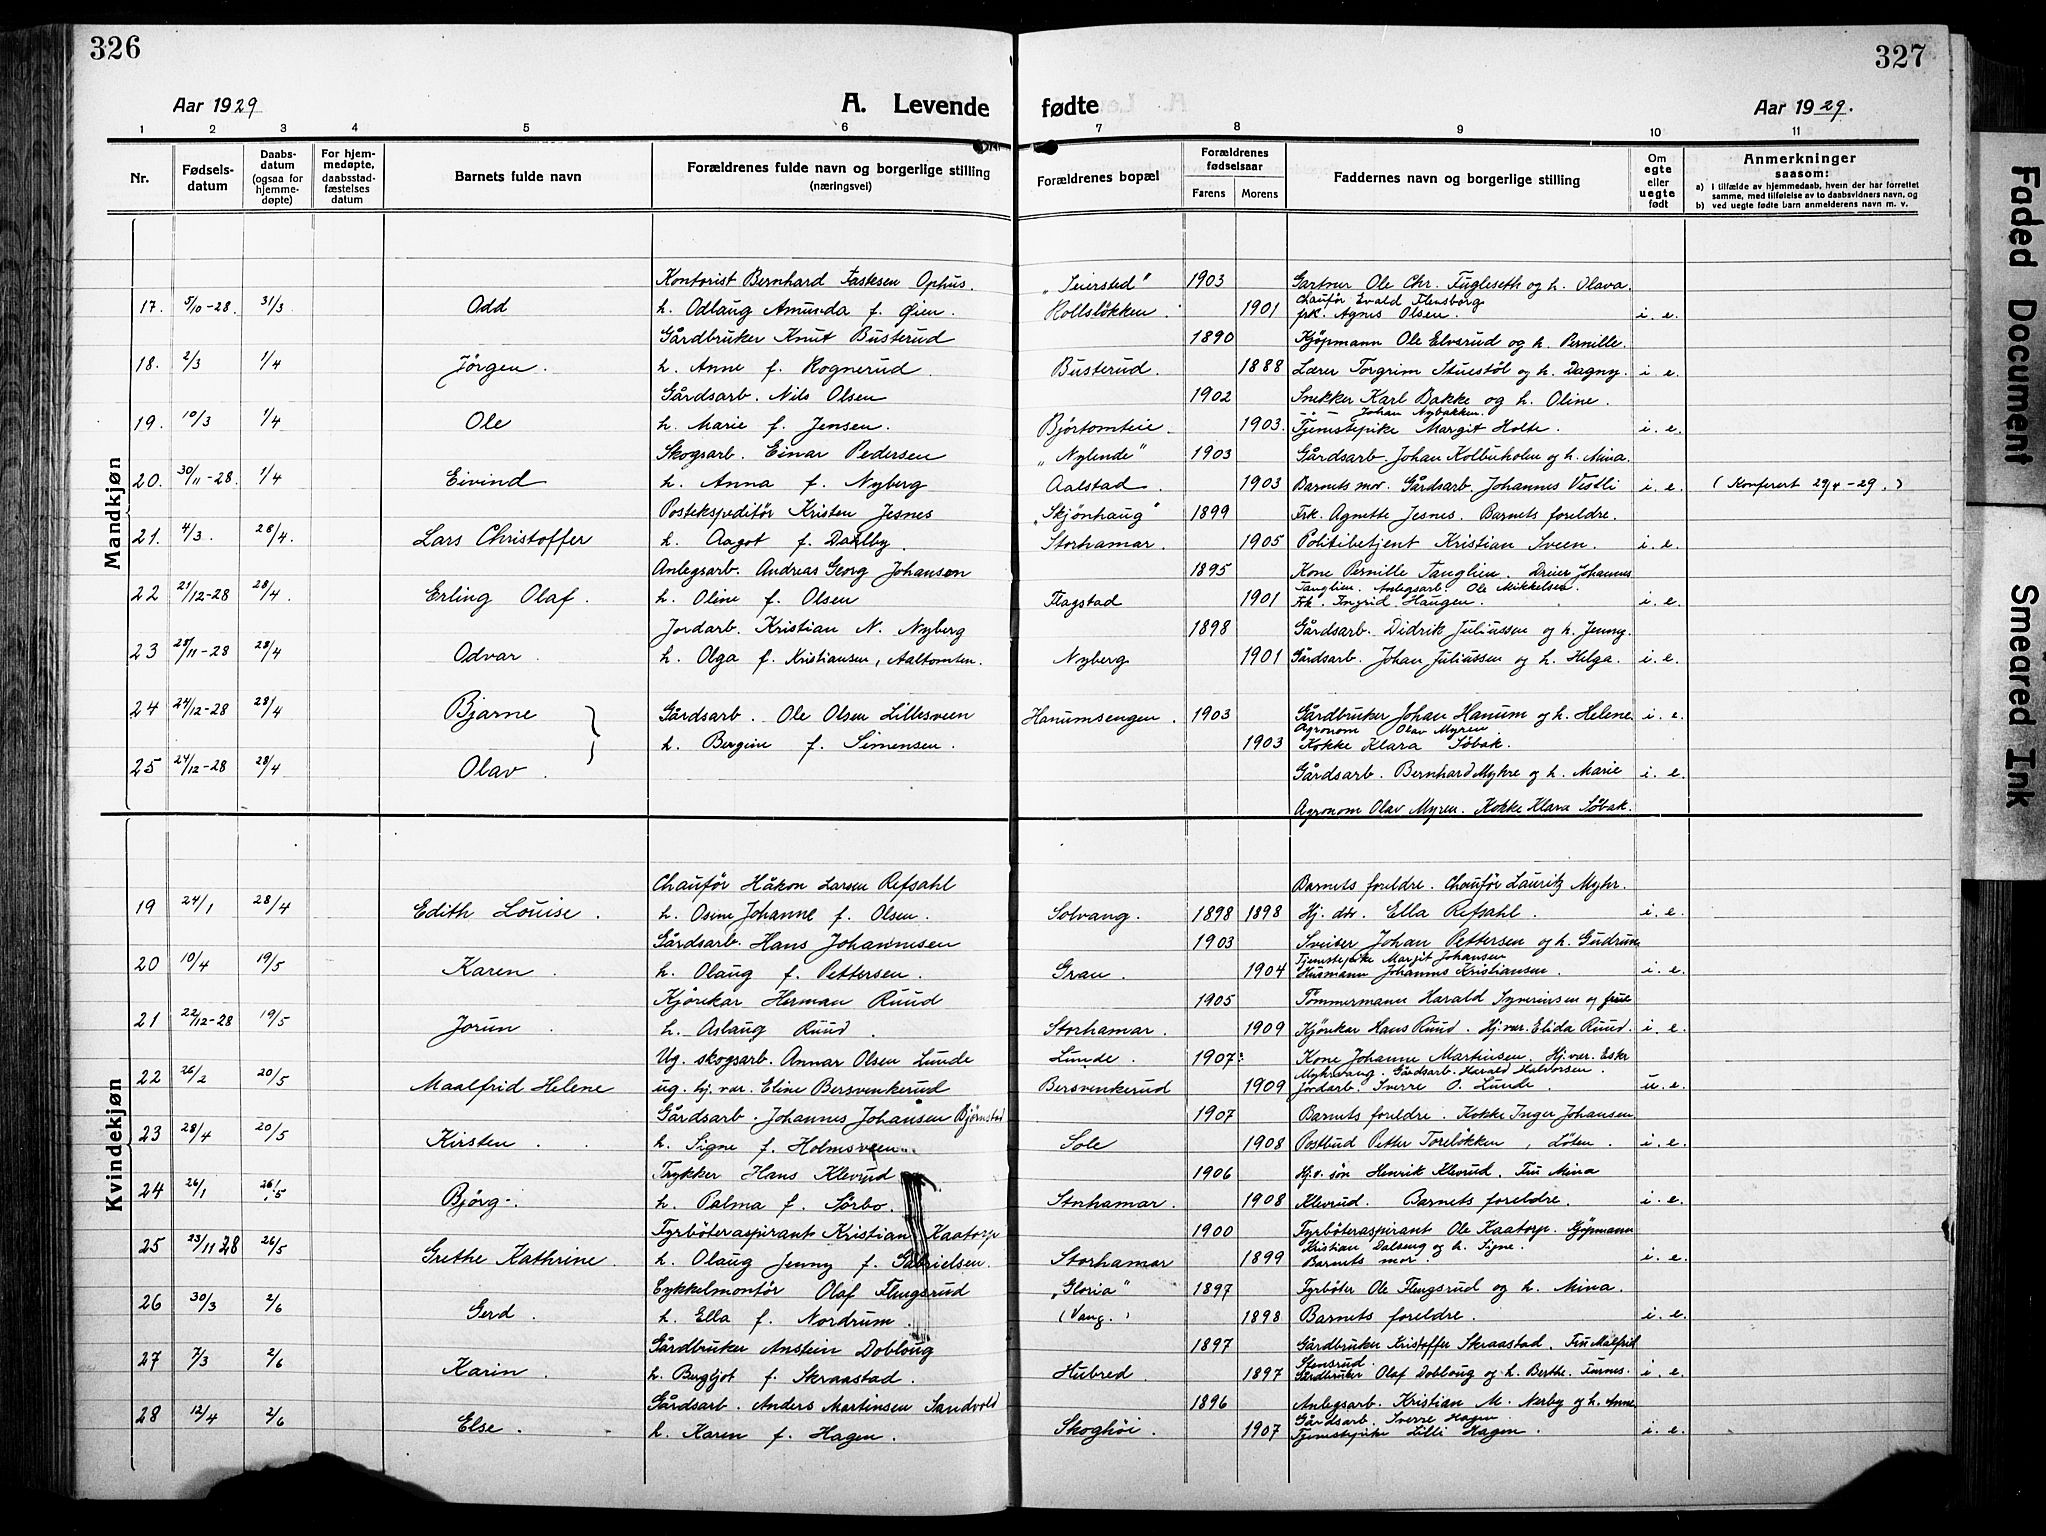 326
327
Aar 1929
A. Levende fødte
Aar 1929.
1 2 3 4 5 6 7 8 9 10 11
Nr.
Fødsels-
datum
Daabs-
datum
(ogsaa for
hjemme-
døpte)
For hjem-
medøpte,
daabsstad-
fæstelses
datum
Barnets fulde navn
Forældrenes fulde navn og borgerlige stilling
(næringsvei)
Forældrenes bopæl
Forældrenes
fødselsaar
Farens
Morens
Faddernes navn og borgerlige stilling
Om
egte
eller
uegte
født
Anmerkninger
saasom:
a) i tilfælde av hjemmedaab, hvem der har forrettet
samme, med tilføielse av to daabsvidners navn, og
b) ved uegte fødte barn anmelderens navn m. v.
Mandkjøn
Kontorist Bernhard Fastesen Ophus. "Seiersted" 1903 Gartner Ole Chr. Fugleseth og h. Olava.
17. 5/10-28. 31/3 Odd h. Odlaug Amunda f. Øien. Rollsløkken. 1901 Chauför Evald Flensborg
frk. Agnes Olsen. i. e.
Gårdbruker Knut Busterud 1890 Kjøpmann Ole Elvsrud og h. Pernille.
18. 2/3 1/4 Jørgen. h. Anne f. Rognerud. Busterud. 1888 Lærer Torgrim Stuestøl og h. Dagny. i. e.
Gårdsarb. Nils Olsen 1902 Snekker Karl Bakke og h. Oline.
Johan Nybakken.
19. 10/3 1/4 Ole h. Marie f. Jensen. Bjørtomteie. 1903. Tjenestepike Margit Holte. i. e.
Skogsarb. Einar Pedersen "Nylende" 1903 Gårdsarb. Johan Kolbuholm og h. Mina.
20. 30/11-28. 1/4 Eivind h. Anna f. Nyberg Aalstad. 1903 Barnets mor. Gårdsarb. Johannes Vestli i. e. (Konferert 29/4-29.)
Postekspeditør Kristen Jesnes "Skjønhaug" 1899 Frk. Agnette Jesnes. Barnets foreldre.
21. 4/3. 28/4. Lars Christoffer h. Aagot f. Dahlby. Storhamar. 1905 Politibetjent Kristian Sveen. i. e.
Anlegsarb. Andreas Georg Johansen 1895 Kone Pernille Tanglien. Dreier Johannes
22 21/12-28 28/4. Erling Olaf. h. Oline f. Olsen Flagstad 1901 Tanglien. Anlegsarb. Ole Mikkelsen.
Frk. Ingrid Haugen. i. e.
Jordarb. Kristian N. Nyberg 1898 Gårdsarb. Didrik Juliussen og h. Jenny.
23 28/11-28 28/4 Odvar. h. Olga f. Kristiansen, Aaltomten. Nyberg 1901 Gårdsarb. Johan Juliussen og h. Helga. i. e.
24 24/12-28 28/4 Bjarne Gårdsarb. Ole Olsen Lillesveen Hanumsengen. 1903 Gårdbruker Johan Hanum og h. Helene i. e.
Agronom Olav Myren
h. Bergine f. Simensen. 1903 Kokke Klara Søbak.
25 24/12-28 28/4 Olav. Gårdsarb. Bernhard Myhre og h. Marie i. e.
Agronom Olav Myren. Kokke Klara Søbak.
Kvindekjøn
Chauför Håkon Larsen Refsahl Barnets foreldre. Chauför Lauritz Myhr.
19 24/1 28/4 Edith Louise. h. Osine Johanne f. Olsen. Solvang. 1898 1898 Hj. dtr. Ella Refsahl. i. e.
Gårdsarb. Hans Johannesen 1903 Sveiser Johan Pettersen og h. Gudrun
20 10/4 19/5 Karen. h. Olaug f. Pettersen. Gran. 1904 Tjenestepike Margit Johansen
Husmann Johannes Kristiansen. i. e.
Kjørekar Herman Ruud 1905 Tømmermann Harald Syverinsen og frue
21 22/12-28 19/5 Jorun. h. Aslaug Ruud. Storhamar. 1909 Kjørekar Hans Ruud. Hj. var. Elida Ruud. i. e.
Ug. skogsarb. Annar Olsen Lunde Lunde. 1907 Kone Johanne Martinsen. Hj. var. Eskr
22 26/2 20/5 Maalfrid Helene ug. hj. var. Eline Bersvenkerud Bersvenkerud 1909 Myhrvang. Gårdsarb. Harald Halvorsen.
Jordarb. Sverre O. Lunde. u. e.
Gårdsarb. Johannes Johansen Bjørnstad 1907 Barnets foreldre. Kokke Inger Johansen
23 28/4 20/5 Kirsten. h. Signe f. Holmsveen. Sole 1908 Postbud Petter Toreløkken, Løten. i. e.
Trykker Hans Klevrud 1906 Hj.v. søn Henrik Klevrud. Fru Mina
24 26/1 26/5 Bjørg. h. Palma f. Sørbo. Storhamar. 1908 Klevrud. Barnets foreldre. i. e.
Fyrbøteraspirant Kristian Kaatorp 1900 Fyrbøteraspirant Ole Kaatorp. Kjøpmann
25 23/11 28 26/5 Grethe Kathrine. h. Olaug Jenny f. Gabrielsen. Storhamar 1899 Kristian Dalseng og h. Signe.
Barnets mor. i. e.
Cykkelmontør Olaf Flengsrud "Gloria" 1897 Fyrbøter Ole Flengsrud og h. Mina.
26 30/3 2/6 Gerd. h. Ella f. Nordrum. (Vang.) 1898 Barnets foreldre. i. e.
Gårdbruker Anstein Dobloug 1897 Gårdbruker Kristoffer Skraastad. Fru Malfrid
27 7/3 2/6 Karin. h. Bergljot f. Skraastad. Hubred. 1897 Stensrud.
Gårdbruker Olaf Dobloug og h. Berthe. Furnes. i. e.
Gårdsarb. Anders Martinsen Sandvold 1896 Anlegsarb. Kristian M. Nerby og h. Anne
28 12/4 2/6 Else. h. Karen f. Hagen. Skoghöi. 1907 Gårdsarb. Sverre Hagen
Tjenestepike Lilli Hagen. i. e.
Faded Document
Smeared Ink